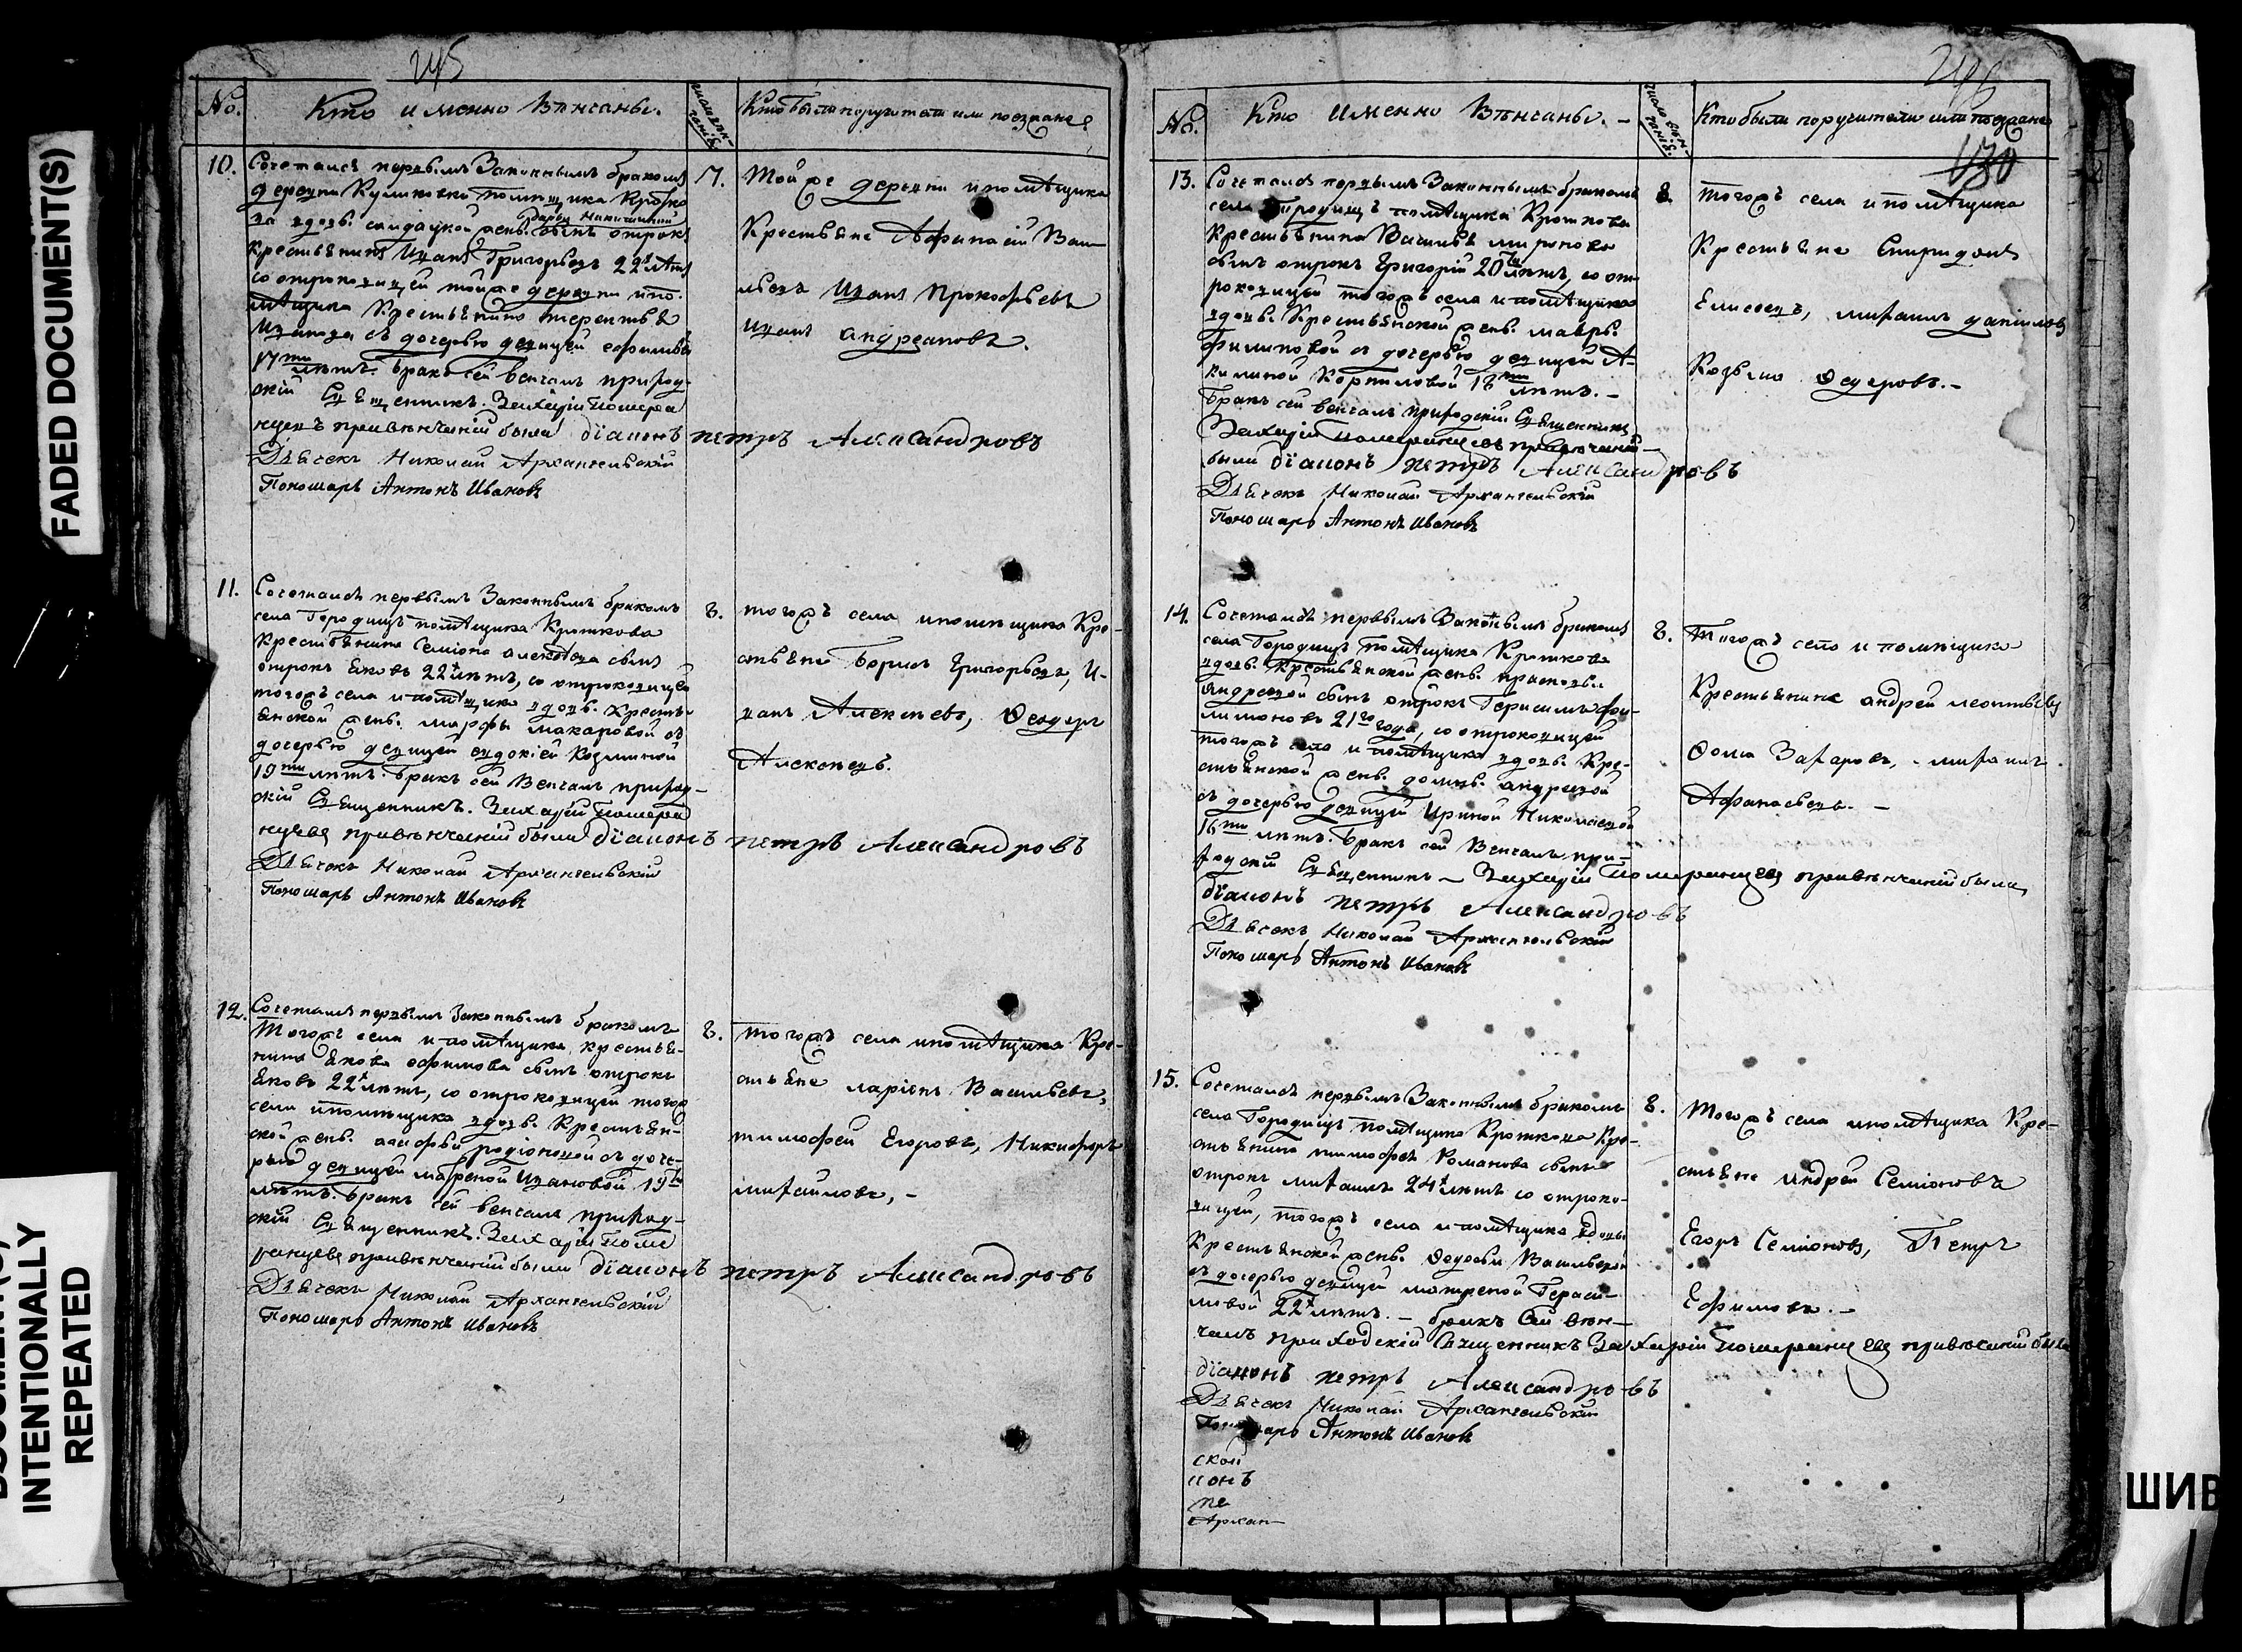 FADED DOCUMENT(S)
INTENTIONALLY
REPEATED
245
No.
Кто именно Вѣнчаны.
число вѣн-
чанія.
Кто были поручители или поезжане
10.
Сочетался первымъ Законнымъ бракомъ
деревни Куликовки помѣщика Кротко
ва вдовы солдатской жены Дарьи Никитиной
сынъ отрокъ
крестьянинъ Иванъ Григорьевъ 22х лѣтъ
со отроковицей тойже деревни и по-
мѣщика Крестьянина терентья
Иванова съ дочерью девицей ефимьей
17ти лѣтъ. бракъ сей венчалъ приход-
скій Священникъ Захарій Померан
цевъ привѣнчаніи были діаконъ петръ Александровъ
Дьячекъ Николай Архангельскій
Пономарь Антонъ Ивановъ
7.
Тойже деревни и помѣщика
Крестьяне Афанасій Васи-
льевъ Иванъ Прокофьевъ
Иванъ андреановъ.
11.
Сочетался первымъ Законнымъ бракомъ
села Городищъ помѣщика Кроткова
Крестьянина Семіона алексеева сынъ
отрокъ Яковъ 22х лѣтъ, со отроковицей
тогожъ села и помѣщика вдовы Кресть-
янской жены марфы макаровой съ
дочерью девицей евдокіей Козминой
19ти лѣтъ. бракъ сей Венчалъ приход-
скій Священникъ Захарій Померан
цевъ привѣнчаніи были діаконъ петръ Александровъ
Дьячекъ Николай Архангельскій
Пономарь Антонъ Ивановъ
8.
тогожъ села и помѣщика Кре-
стьяне борисъ Григорьевъ, И-
ванъ Алексѣевъ, Ѳедоръ
Алексѣевъ.
12.
Сочетался первымъ Законнымъ бракомъ
Тогожъ села и помѣщика крестья-
нина Якова ефимова сынъ отрокъ
Яковъ 22х лѣтъ, со отроковицей тогож
села и помѣщика вдовы Крестьян-
ской жены родіоновой съ доче-
рью девицей мавреной Ивановой 19ти
лѣтъ. бракъ сей венчалъ приход-
скій Священникъ Захарій Поме
ранцевъ привѣнчаніи были діаконъ петръ Александровъ
Дьячекъ Николай Архангельскій
Пономарь Антонъ Ивановъ
8.
тогожъ села и помѣщика Кре-
стьяне ларіонъ Васильевъ,
тимофей Егоровъ, Никифоръ
михайловъ, -
246
130
No.
Кто именно Вѣнчаны. -
число вѣн-
чанія.
Кто были поручители или поезжане
13.
Сочетался первымъ Законнымъ бракомъ
села Городищъ помѣщика Кроткова
Крестьянина Василья миронова
сынъ отрокъ Григорій 20ти лѣтъ, со от-
роковицей тогожъ села и помѣщика
вдовы Крестьянской жены мавры
Филиповой съ дочерью девицей А-
килиной Корниловой 18ти лѣтъ. -
Бракъ сей венчалъ приходскій Священникъ
Захарій Померанцевъ привѣнчаніи
были діаконъ петръ Александровъ
Дьячекъ Николай Архангельскій
Пономарь Антонъ Ивановъ
8.
тогожъ села и помѣщика
Крестьяне Спиридонъ
Елисеевъ, михаилъ даниловъ
Козьма Ѳедоровъ. -
14.
Сочетался первымъ Законнымъ бракомъ
села Городищъ помѣщика Кроткова
вдовы крестьянской жены прасковьи
Андреевой сынъ отрокъ Герасимъ фи-
лимоновъ 21го года, со отроковицей
тогожъ села и помѣщика вдовы Кре-
стьянской жены домны андреевой
съ дочерью девицей Ириной Николаевой
16ти лѣтъ. бракъ сей Венчалъ при-
ходскій Священникъ - Захарій Померанцевъ привѣнчаніи были
діаконъ петръ Александровъ
Дьячекъ Николай Архангельскій
Пономарь Антонъ Ивановъ
8.
Тогожъ села и помѣщика
Крестьянинъ андрей леонтьевъ
Ѳома Захаровъ, - михаилъ
Афанасьевъ. -
15.
Сочетался первымъ Законнымъ бракомъ
села Городищъ помѣщика Кроткова Кре-
стьянина тимофея Романова сынъ
отрокъ михаилъ 24х лѣтъ со отроко-
вицей, тогожъ села и помѣщика вдовы
Крестьянской жены Ѳедосьи Васильевой
съ дочерью девицей матреной Гераси-
мовой 22х лѣтъ. - бракъ Сей вѣн-
чалъ приходскій Священникъ Захарій Померанцевъ привѣнчаніи были
діаконъ петръ Александровъ
Дьячекъ Николай Архангельскій
Пономарь Антонъ Ивановъ
ской
конъ
пе
Архан
8.
Тогожъ села и помѣщика Кре-
стьяне Андрей Семіоновъ
Егоръ Семіоновъ, Петръ
Ефимовъ. -
ШИВ